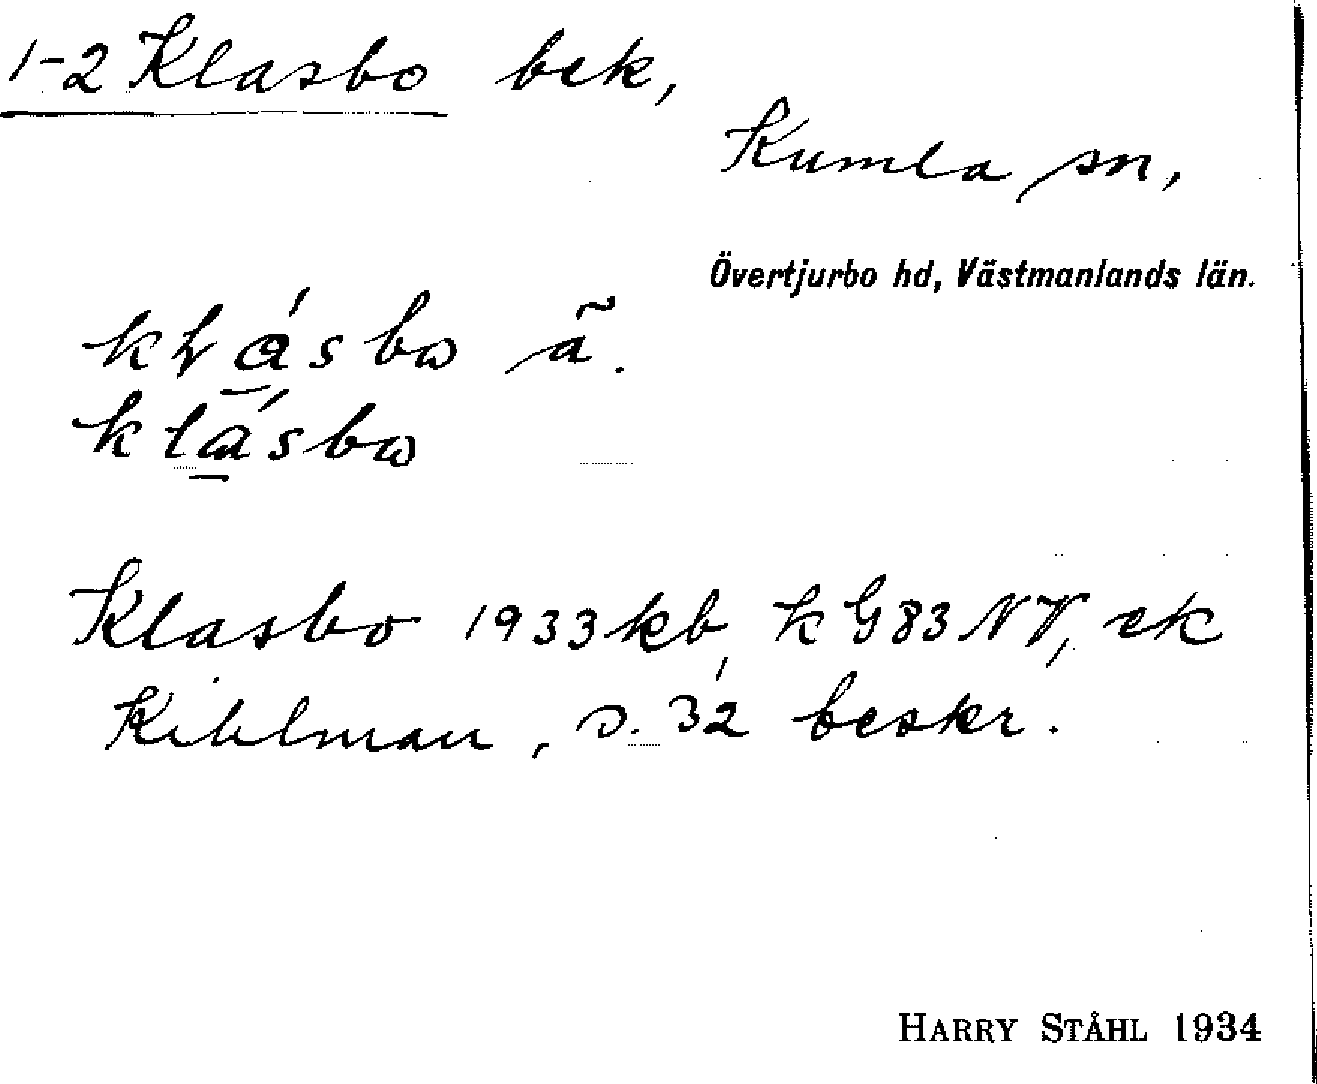 1-2 Klasbo bek,
Kumla sn,
Övertjurbo hd, Västmanlands län.
kɫásbω ã.
klásbω
Klasbo 1933 kb, k G83 NV, ek
Kihlman, s. 32 beskr.
HARRY STÅHL 1934